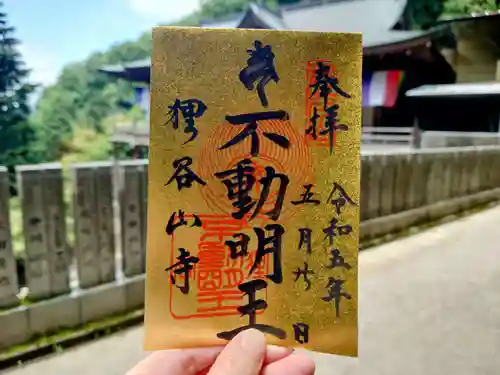 奉拝
令和五年
五月廿日
不動明王
狸谷山寺